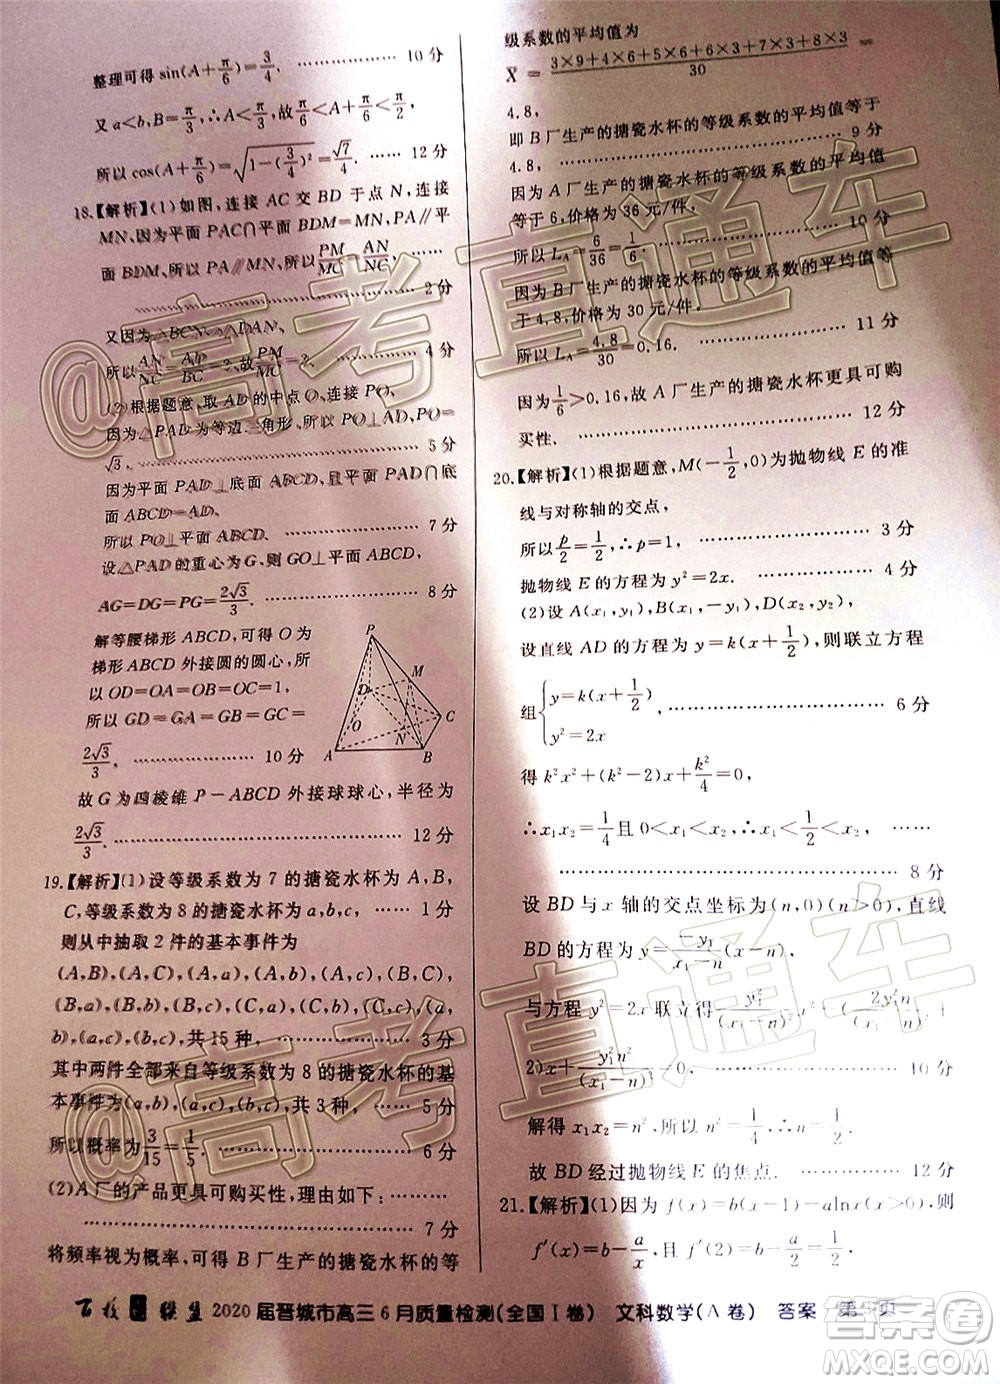 整理可得 sin(A+π/6)=3/4. ………… 10 分
又 a<b,B=π/3,∴A<π/3,故π/6<A+π/6<π/2,
所以 cos(A+π/6)=√(1-(3/4)²)=√7/4. …… 12 分
18.【解析】(1)如图,连接 AC 交 BD 于点 N,连接
MN,因为平面 PAC∩平面 BDM=MN,PA∥平面
BDM,所以 PA∥MN,所以PM/MC=AN/NC.
………… 2 分
又因为△BCN∽△DAN,
所以AN/NC=AD/BC=2,故PM/MC=2. ………… 4 分
(2)根据题意,取 AD 的中点 O,连接 PO,
因为△PAD 为等边三角形,所以 PO=
√3. ………… 5 分
因为平面 PAD⊥底面 ABCD,PAD∩底
面 ABCD=AD,
所以 PO⊥平面 ABCD. ………… 7 分
设△PAD 的重心为 G,则 GO⊥平面 ABCD,
AG=DG=PG=2√3/3. ………… 8 分
解等腰梯形 ABCD,可得 O 为
梯形 ABCD 外接圆的圆心,所
以 OD=OA=OB=OC,
所以 GD=GA=GB=GC=
2√3/3. ………… 10 分
P
M
D
C
O
N
A
B
故 G 为四棱锥 P-ABCD 外接球球心,半径为
2√3/3. ………… 12 分
19.【解析】(1)设等级系数为 7 的搪瓷水杯为 A,B,
C,等级系数为 8 的搪瓷水杯为 a,b,c, …… 1 分
则从中抽取 2 件的基本事件为
(A,B),(A,C),(A,a),(A,b),(A,c),(B,C),
(B,a),(B,b),(B,c),(C,a),(C,b),(C,c),(a,
b),(a,c),(b,c),共 15 种, ………… 4 分
其中两件全部来自等级系数为 8 的搪瓷水杯的基
本事件为(a,b),(a,c),(b,c),共 3 种, …… 5 分
所以概率为3/15=1/5. ………… 6 分
(2)A 厂的产品更具可购买性,理由如下:
………… 7 分
将频率视为概率,可得 B 厂生产的搪瓷水杯的等
级系数的平均值为
X̄=(3×9+4×6+5×6+6×3+7×3+8×3)/30=
4.8,
即 B 厂生产的搪瓷水杯的等级系数的平均值等于
4.8, ………… 9 分
因为 A 厂生产的搪瓷水杯的等级系数的平均值
等于 6,价格为 36 元/件,
所以 L_A=6/36=1/6. …………
因为 B 厂生产的搪瓷水杯的等级系数的平均值等
于 4.8,价格为 30 元/件,
所以 L_A=4.8/30=0.16. ………… 11 分
因为1/6>0.16,故 A 厂生产的搪瓷水杯更具可购
买性. ………… 12 分
20.【解析】(1)根据题意,M(-1/2,0)为抛物线 E 的准
线与对称轴的交点,
所以p/2=1/2,∴p=1, ………… 3 分
抛物线 E 的方程为 y²=2x. ………… 4 分
(2)设 A(x₁,y₁),B(x₁,-y₁),D(x₂,y₂),
设直线 AD 的方程为 y=k(x+1/2),则联立方程
组{y=k(x+1/2), y²=2x ………… 6 分
得 k²x²+(k²-2)x+k²/4=0,
∴x₁x₂=1/4且 0<x₁<1/2,
………… 8 分
设 BD 与 x 轴的交点坐标为(n,0)(n>0),直线
BD 的方程为 y=-y₁/(x₁-n)(x-n),
与方程 y²=2x 联立得y₁²/(x₁-n)²x²-(2y₁²n/(x₁-n)²+
2)x+y₁²n²/(x₁-n)²=0, ………… 10 分
解得 x₁x₂=n²,∴n²=1/4,∴n=1/2,
故 BD 经过抛物线 E 的焦点. ………… 12 分
21.【解析】(1)因为 f(x)=b(x-1)-alnx(x>0),则
f′(x)=b-a/x,且 f′(2)=b-a/2=
百校联盟 2020 届晋城市高三 6 月质量检测(全国 I 卷) 文科数学(A 卷) 答案 第 页
@高考直通车
@高考直通车
答案圈
MXQE.COM